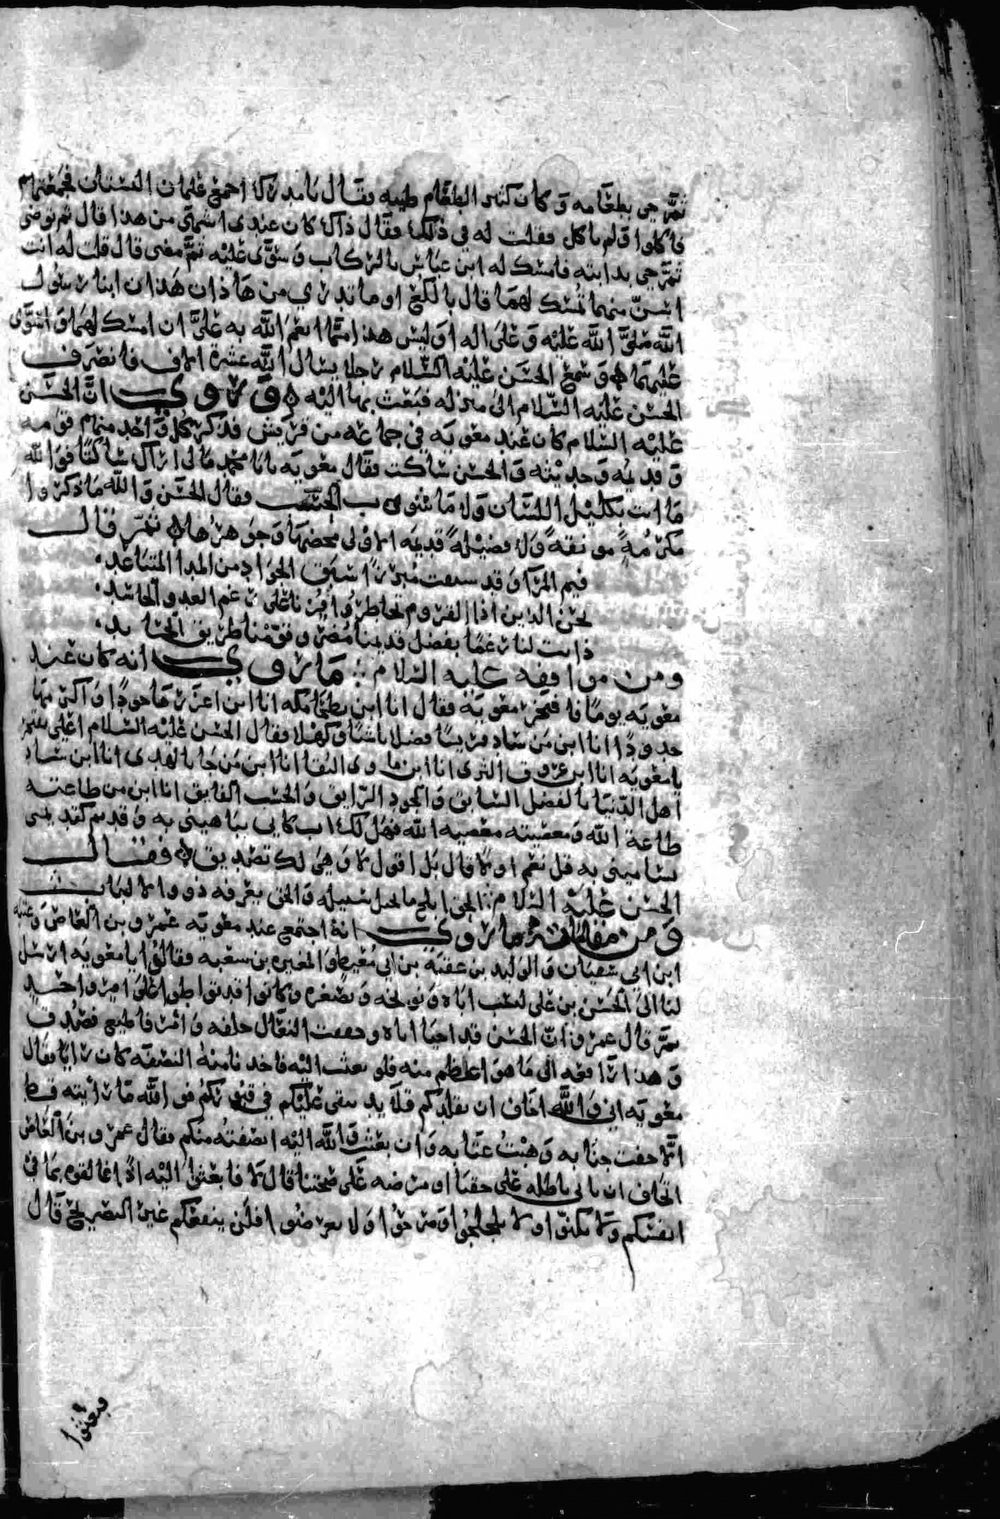 ثم جي بطعامه وكان كثير الطعام طيبه فقال يا مدرك اجمع غلمان البستان فجمعتهم
فاكلوا ولم ياكل فقلت له في ذلك فقال ذاك كان عندي اشهى من هذا قال ثم توضى
ثم جي بدابته فامسك له ابن عباس بالركاب وسوى عليه ثم مضى قال قلت له انت
اسن منهما تمسك لهما قال يالكع او ما تدري من هاذان هذان ابنا رسول
الله صلى الله عليه وعلى اله اوليس هذا مما انعم الله به علي ان امسك لهما واسوى
عليهما وسمع الحسن عليه السلام رجلا يسال الله عشرة الاف فانصرف
الحسن عليه السلام الى منزله فبعث بها اليه وروي ان الحسن
عليه السلام كان عند معويه في جماعه من قريش فذكر كل واحد منهم قومه
وقديمه وحديثه والحسن ساكت فقال معويه يا با محمد مالي اراك ساكتا فوالله
ما انت بكليل اللسان ولا ماشوب الحسب فقال الحسن والله ما ذكروا
مكرمة مونقة ولا فضيلة قديمه الا ولي محضها وجوهرها ثم قال
فيم المرا وقد سبقت مبرزا سبق الجواد من المدا المتباعد
نحن الذين اذا القروم تخاطروا فزنا على رغم العدو الحاسد
دانت لنا رغما بفضل قديمنا مضر وقومنا طريق الحايد
ومن مواقفه عليه السلام ما روي انه كان عند
معويه يوما فافتخر معويه فقال انا ابن بطحا مكه انا ابن اعزرها جودا واكرمها
جدودا انا ابن من ساد قريشا فضلا ناشيا وكهلا فقال الحسن عليه السلام اعلي تفتخر
يا معويه انا ابن عروق الثرى انا ابن ماوى التقا انا ابن من جا بالهدى انا ابن من ساد
اهل الدنيا بالفضل السابق والجود الرايق والحسب الفايق انا ابن من طاعته
طاعة الله ومعصيته معصيه الله فهل لك اب كابي تباهيني به وقديم كقديمي
تساميني به قل نعم او لا قال بل اقول لا وهي لك تصديق فقال
الحسن عليه السلام الحق ابلج ما يحيل سبيله والحق يعرفه ذووا الالباب
ومن مقاماته ما روي انه اجتمع عند معويه عمرو بن العاص وعتبه
ابن ابي سفيان والوليد بن عقبة بن ابي معيط والمغيره بن شعبه فقالوا يا معويه ارسل
لنا الى الحسن بن علي لنسب اباه ونوبخه ونصغره وكانوا قد تواطوا على امر واحد
ثم قال عمرو ان الحسن قد احيا اباه وخفقت النعال خلفه وامر فاطيع فصدق
وهذا رافعه الى ما هو اعظم منه فلو بعثت اليه فاخذنا منه النصفه كان رايا فقال
معويه اني والله اخاف ان يقلدكم قلايد يبقى عليكم في قبوركم فو الله ما رايته قط
الا خفت جنابه وهبت عتابه وان بعثت والله اليه انصفته منكم فقال عمرو بن العاص
اتخاف ان ياتي باطله على حقنا او مرضه على صحتنا قال لا فابعثوا اليه اذا فالقوه بما في
انفسكم ولا تكنوا ولا تلجلجوا وصرحوا ولا تعرضوا فلن ينفعكم غير التصريح قال
فبعثوا